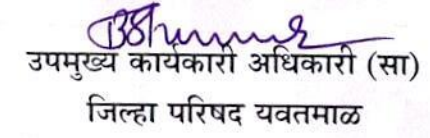 उपमुख्य कार्यकारी अधिकारी (सा)
जिल्हा परिषद यवतमाळ